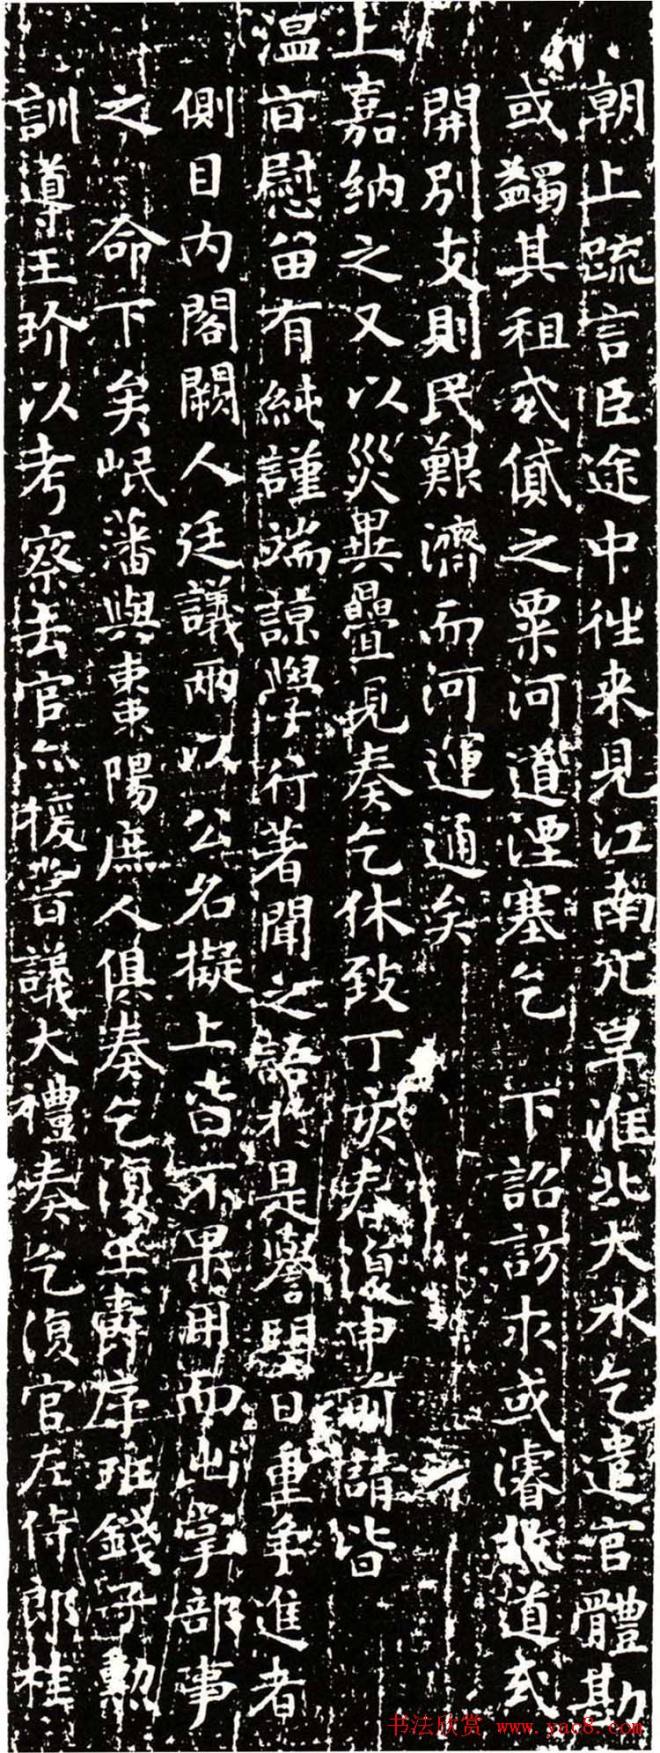 朝上疏言臣途中往来見江南亢旱淮北大水乞遣官體勘
或蠲其租或貸之粟河道湮塞乞下詔訪求或濬故道或
開別支則民艱濟而河運通矣
上嘉納之又以災異疊見奏乞休致丁亥春復申前請皆
温旨慰留有純謹端諒學行著聞之語於是譽望日重争進者
側目内閣闕人廷議兩以公名擬上皆不果用而出掌部事
之命下矣岷藩與東陽庶人俱奏乞復王爵序班錢子勳
訓導王玠以考察去官亦援昔議大禮奏乞復官左侍郎桂
书法欣赏 www.yac8.com